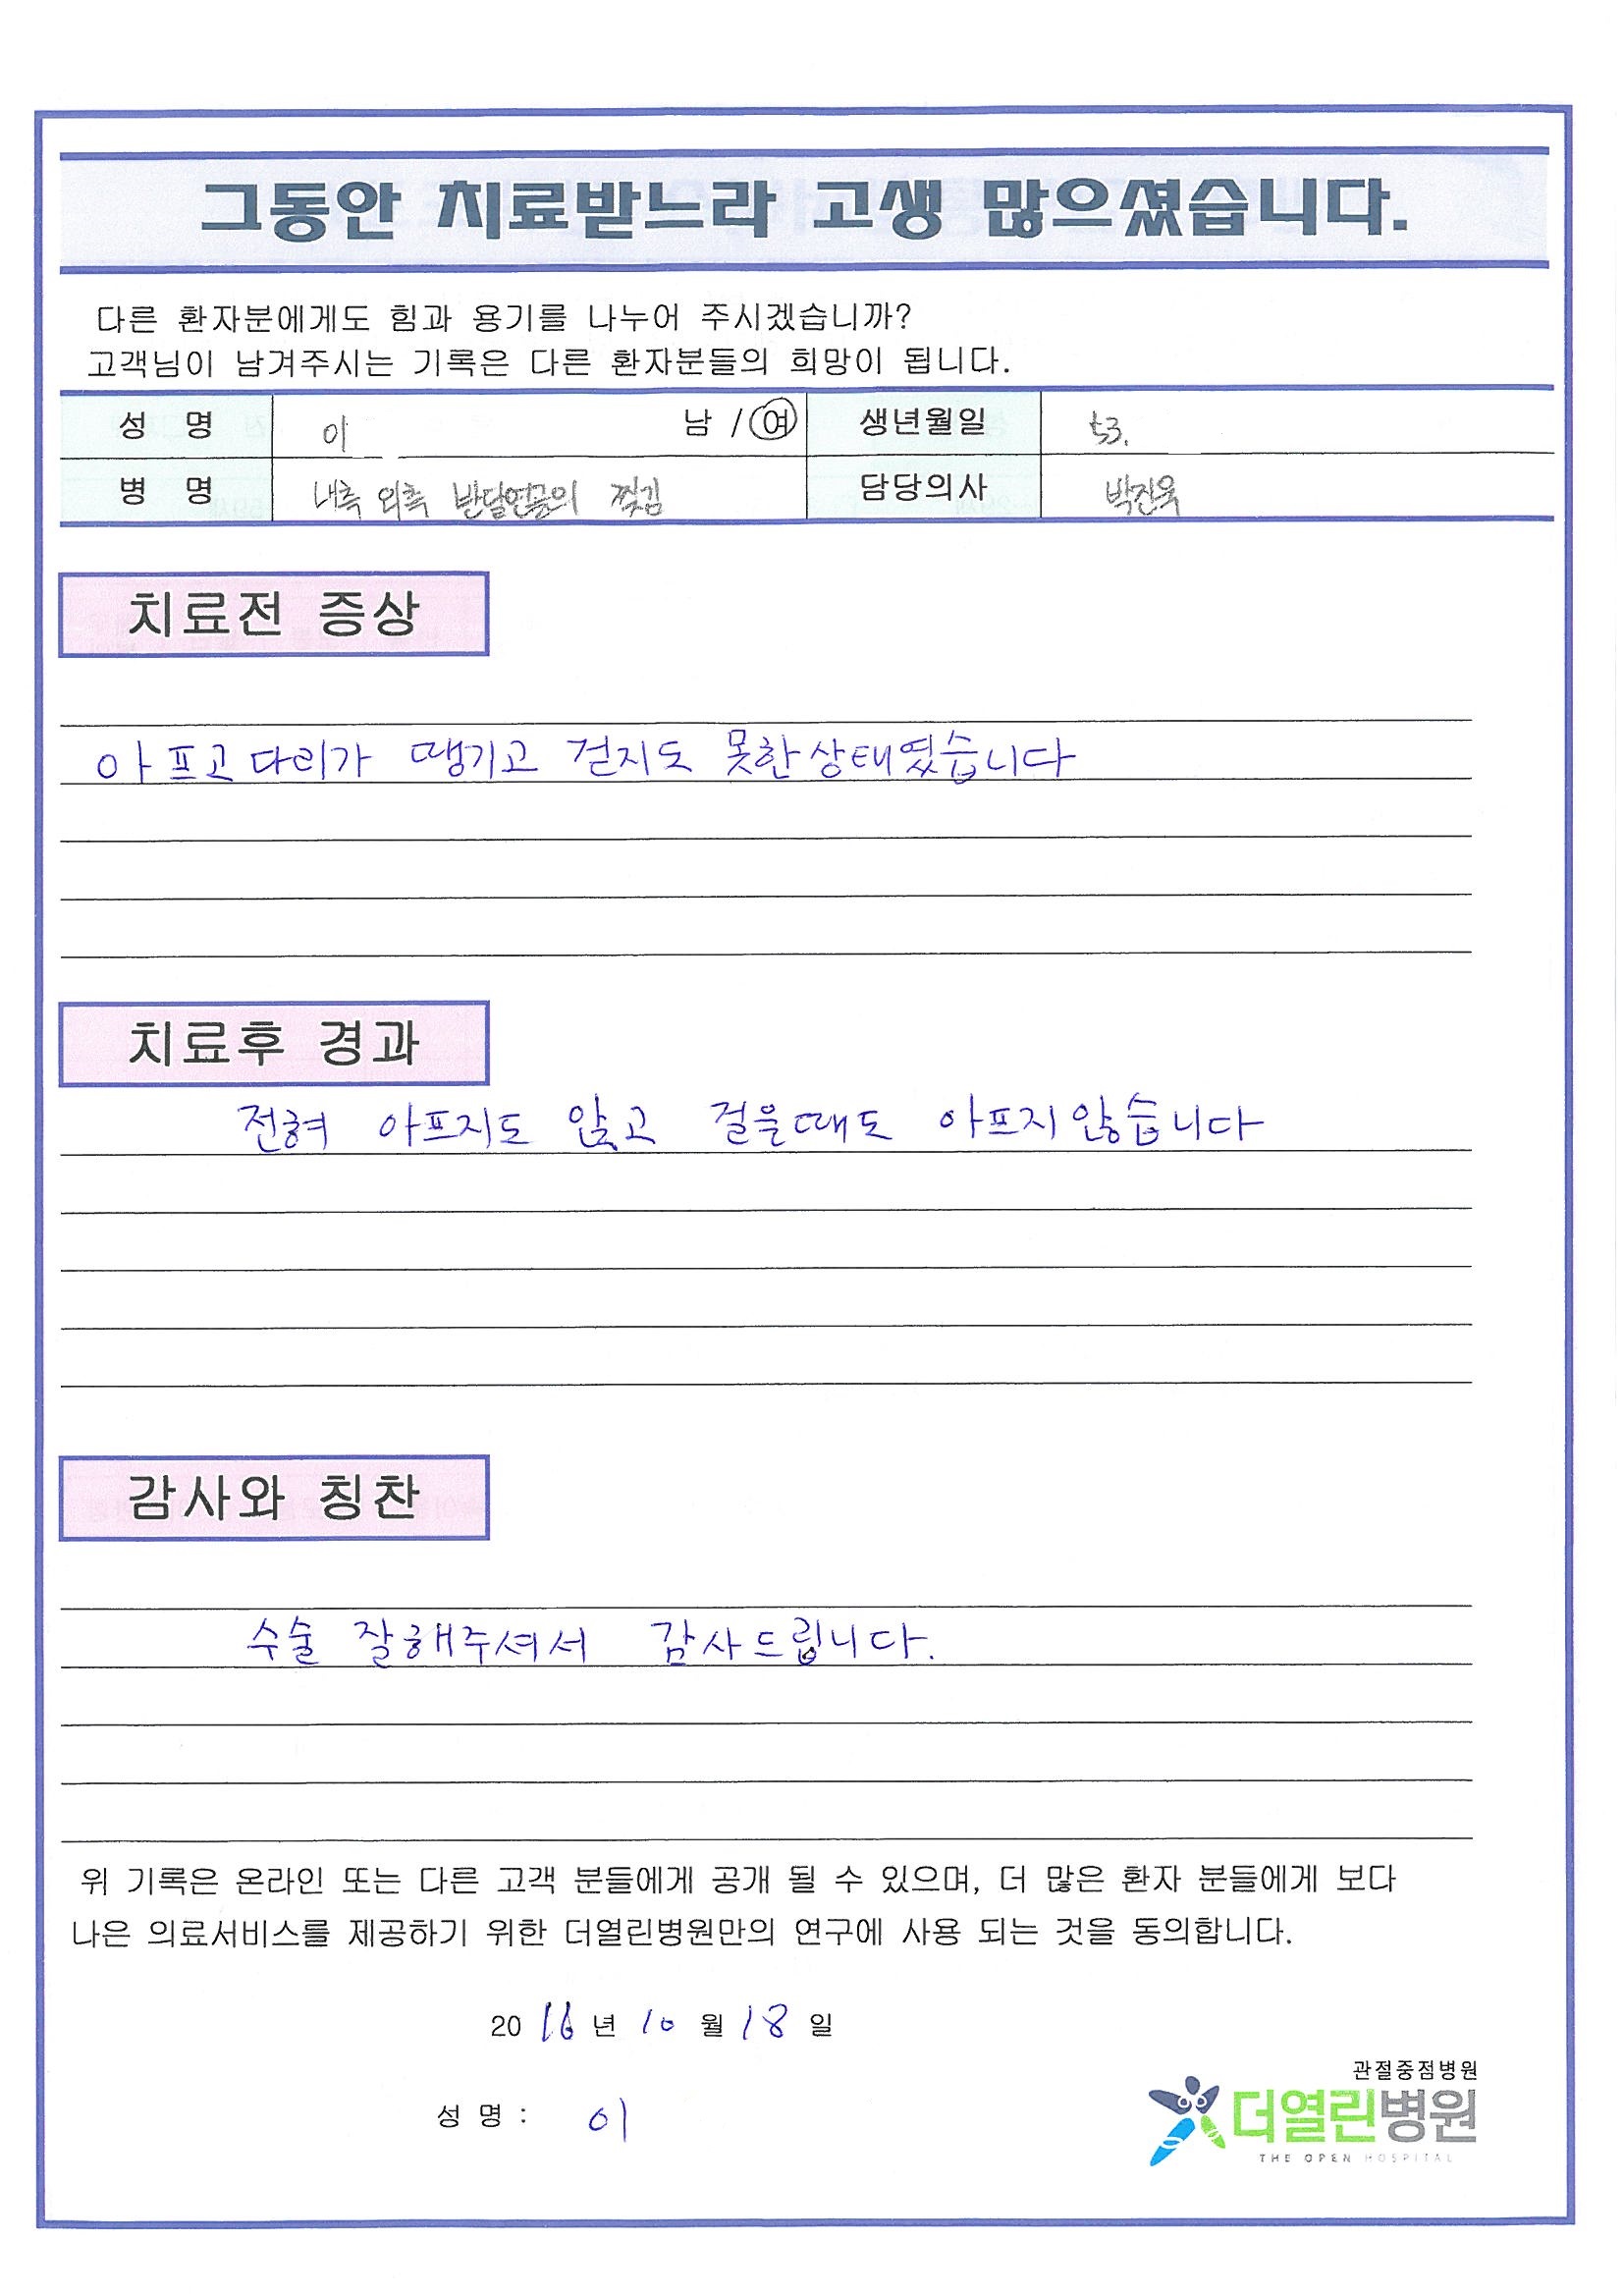 그동안 치료받느라 고생 많으셨습니다.
다른 환자분에게도 힘과 용기를 나누어 주시겠습니까?
고객님이 남겨주시는 기록은 다른 환자분들의 희망이 됩니다.
성 명 이 남 / 여 생년월일 53.
병 명 내측 외측 반달연골의 찢김 담당의사 박진욱
치료전 증상
아프고 다리가 땡기고 걷지도 못한상태였습니다
치료후 경과
전혀 아프지도 않고 걸을때도 아프지않습니다
감사와 칭찬
수술 잘해주셔서 감사드립니다.
위 기록은 온라인 또는 다른 고객 분들에게 공개 될 수 있으며, 더 많은 환자 분들에게 보다
나은 의료서비스를 제공하기 위한 더열린병원만의 연구에 사용 되는 것을 동의합니다.
2016년 10월 18일
성 명 : 이
관절중점병원
더열린병원
THE OPEN HOSPITAL